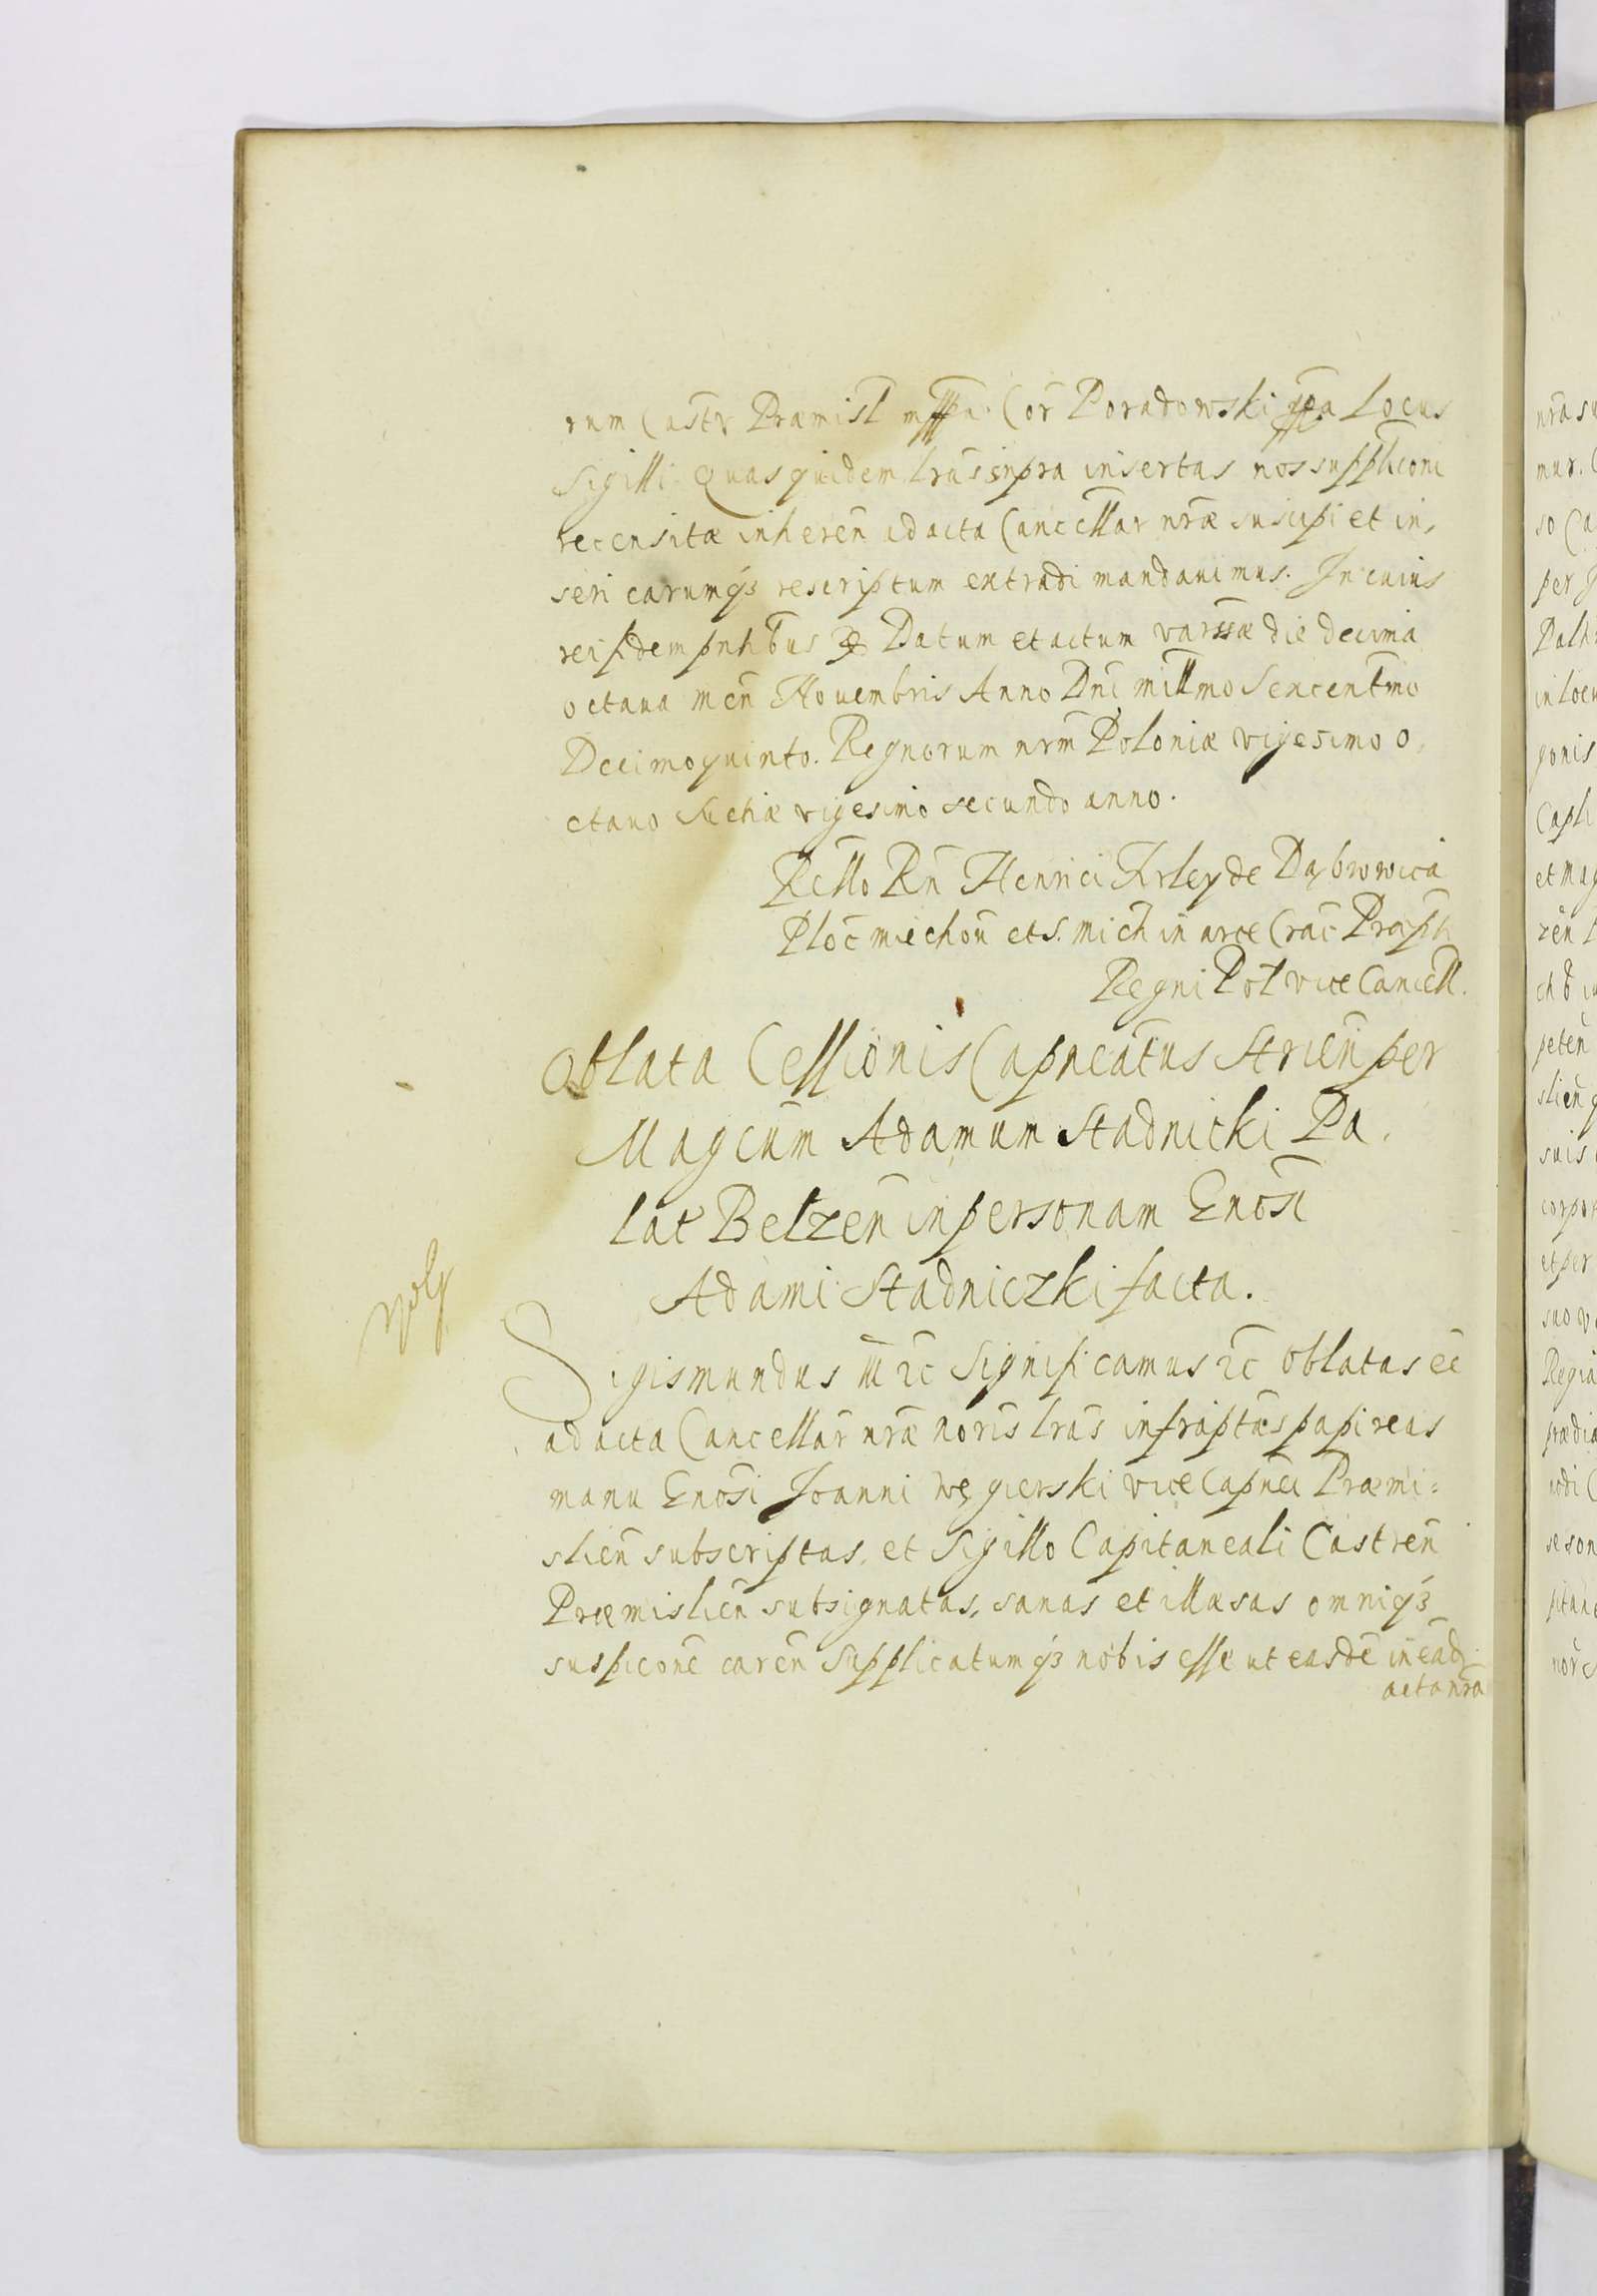 rum Castr Præmisl mppa. Cor Poradowski mppa Locus
Sigilli. Quas quidem lras supra insertas nos supplicōni
recensitæ inherēn ad acta Cancellar nræ suscipi et in,
seri earumq3 rescriptum extradi mandauimus. In cuius
rei fidem pnhbus Datum et actum varssæ die decima
octaua mēn Nouembris Anno Dnī millmo Sexcentmo
Decimoquinto. Regnorum nrm̄ Poloniæ vigesimo o,
ctauo Suetiæ vigesimo secundo anno.
Rello Rn̄ Henrici Firley de Dąbrowica
Ploc̄ miechou et S. mich in arce Crac̄ Præpti
Regni Pol vice Cancell.
Oblata Cessionis Capneatus Striēn per
Magcum Adamum Stadnicki Pa,
lat Belzēn in personam Gnosi
Adami Stadniczki facta.
Sigismundus III &c Significamus &c Oblatas eē
ad acta Cancellar nræ noris lras infraptas papireas
manu Gnosi Joanni węgierski vice Capnei Præmi=
sliēn subscriptas, et Sigillo Capitaneali Castrēn
Præmisliēn subsignatas, sanas et illæsas omniq3
suspicōnē carēn Supplicatumq3 nobis esse ut easdē in ead
acta nrā